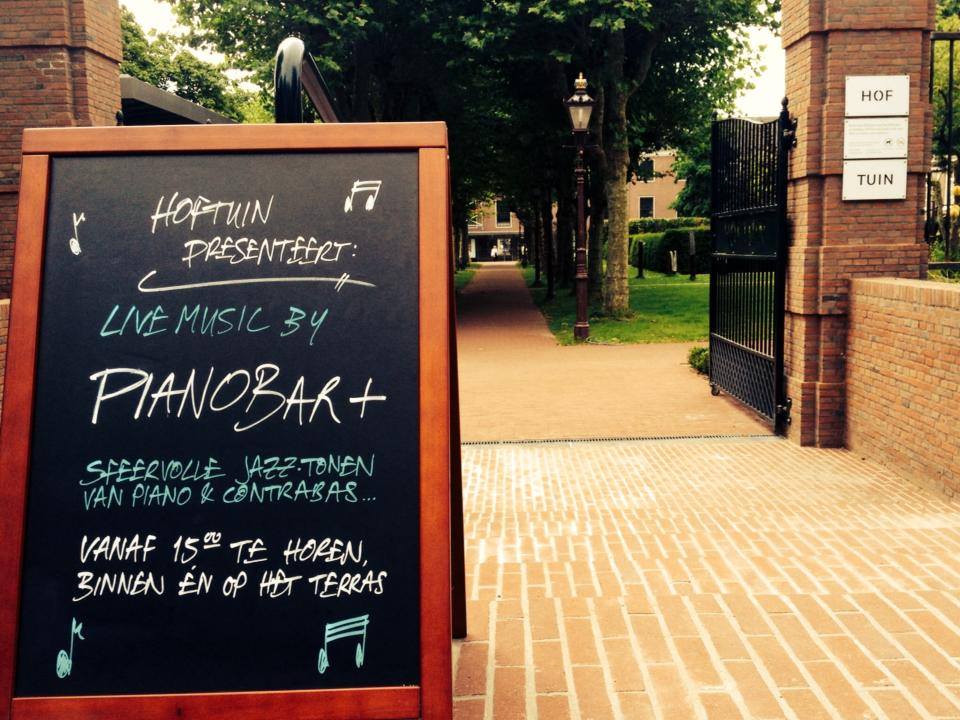 HOFTUIN
PRESENTEERT:
LIVE MUSIC BY
PIANOBAR+
SFEERVOLLE JAZZ-TONEN
VAN PIANO & CONTRABAS...
VANAF 15⁰⁰ TE HOREN,
BINNEN ÉN OP HET TERRAS
HOF
TUIN